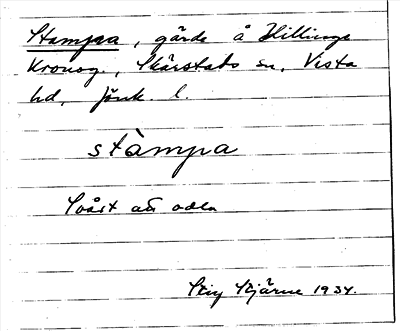 Stampaa, gärde å Hillinge
kronog., Skärstads sn, Vista
hd, Jönk. l.
stàmpa
Svårt att odla
Stig Stjärne 1934.